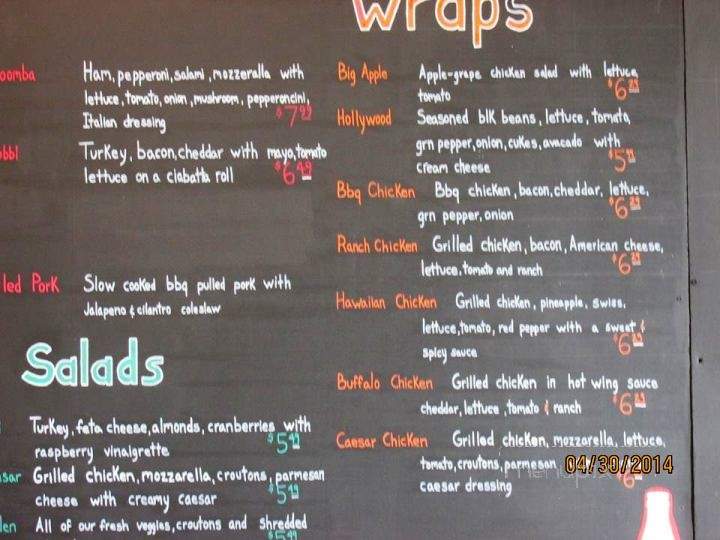 wraps
oomba Ham, pepperoni, salami, mozzeralla with
lettuce, tomato, onion, mushroom, pepperoncini,
Italian dressing $7.99
obbl Turkey, bacon, cheddar with mayo, tomato
lettuce on a ciabatta roll $6.49
led Pork Slow cooked bbq pulled pork with
Jalapeno & cilantro coleslaw
Salads
Turkey, feta cheese, almonds, cranberries with
raspberry vinaigrette $5.49
sar Grilled chicken, mozzarella, croutons, parmesan
cheese with creamy caesar $5.49
den All of our fresh veggies, croutons and shredded
Big Apple Apple-grape chicken salad with lettuce,
tomato $6.29
Hollywood Seasoned blk beans, lettuce, tomato,
grn pepper, onion, cukes, avacado with
cream cheese
Bbq Chicken Bbq chicken, bacon, cheddar, lettuce,
grn pepper, onion $6.29
Ranch Chicken Grilled chicken, bacon, American cheese,
lettuce, tomato and ranch $6.29
Hawaiian Chicken Grilled chicken, pineapple, swiss,
lettuce, tomato, red pepper with a sweet &
spicy sauce $6.29
Buffalo Chicken Grilled chicken in hot wing sauce
cheddar, lettuce, tomato & ranch $6.29
Caesar Chicken Grilled chicken, mozzarella, lettuce,
tomato, croutons, parmesan
caesar dressing
04/30/2014